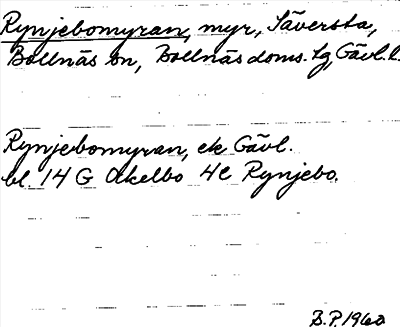 Rynjebomyran, myr, Säversta,
Bollnäs sn, Bollnäs doms. tg, Gävl. l.
Rynjebomyran, ek Gävl.
bl. 14 G Ockelbo 4c Rynjebo.
B.P. 1960